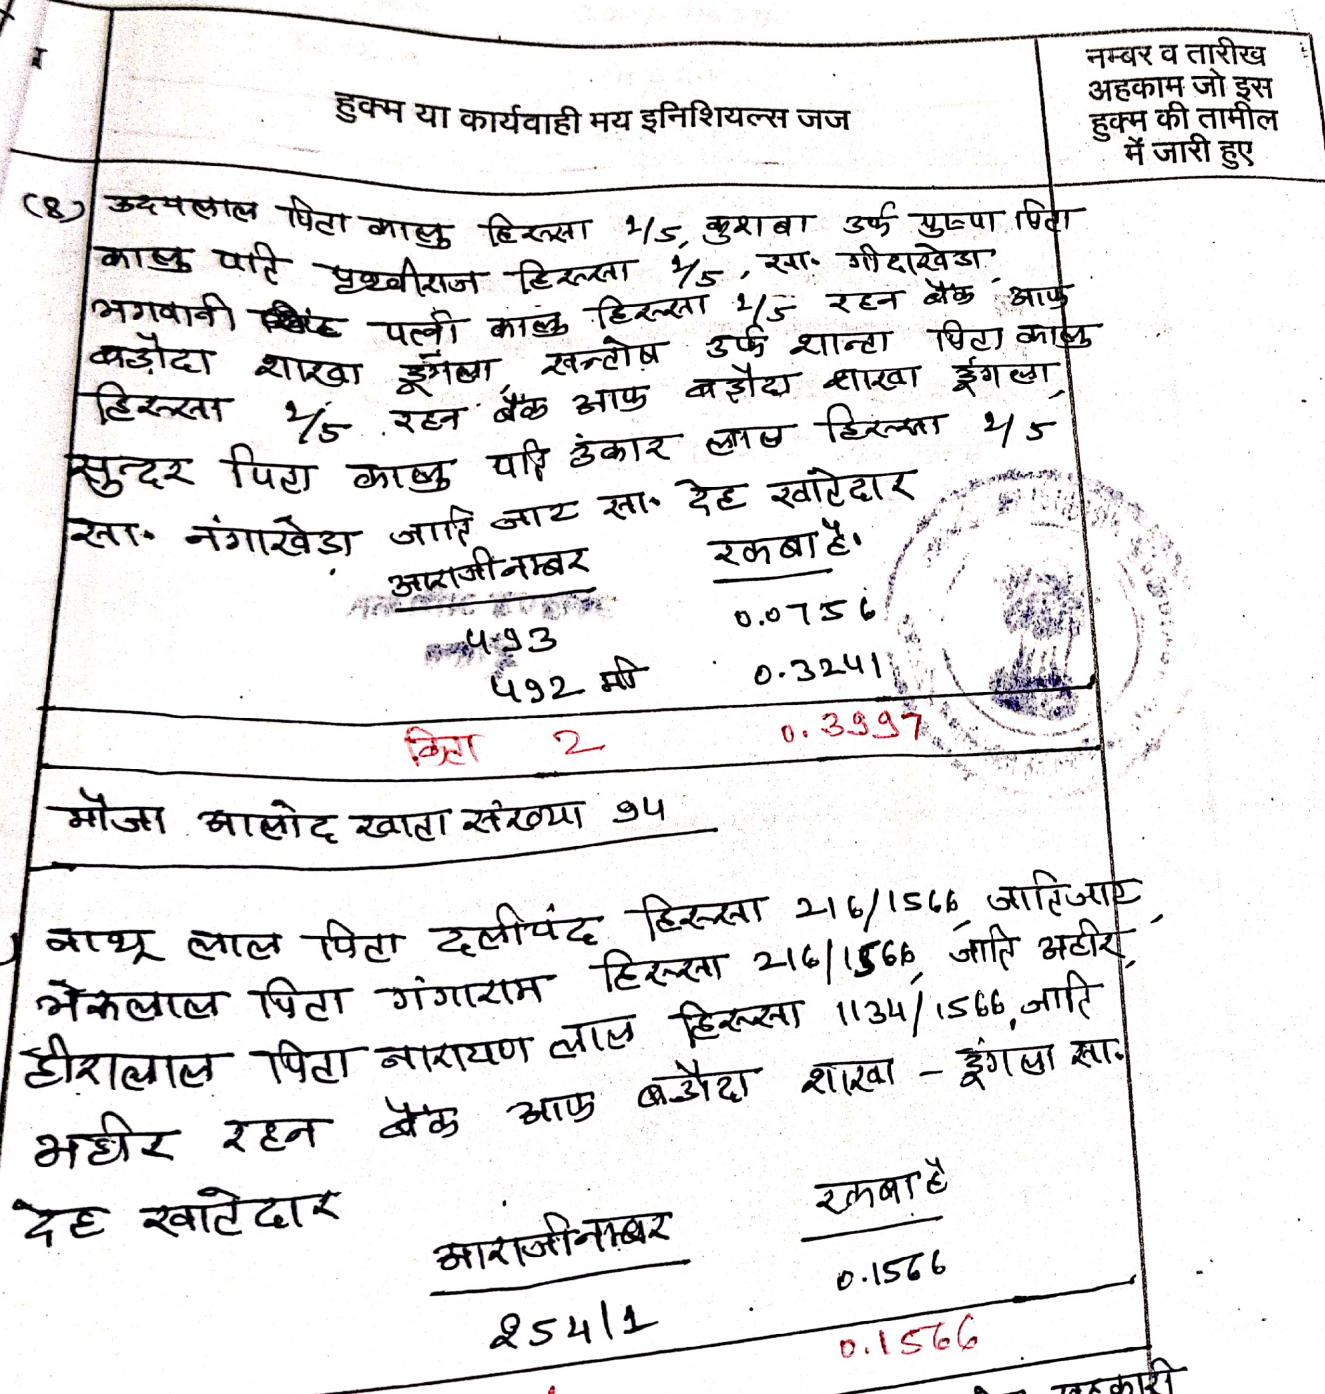 हुक्म या कार्यवाही मय इनिशियल्स जज
नम्बर व तारीख
अहकाम जो इस
हुक्म की तामील
में जारी हुए
(8) उदयलाल पिता कालु हिस्सा 1/5, कुशबा उर्फ पिता
कालु पति पृथ्वीराज हिस्सा 1/5, सा. गोदाखेडा,
भगवानी पत्नी कालु हिस्सा 1/5 रहन बैंक आफ
बडौदा शाखा डूंगला, सन्तोष उर्फ शान्ता पिता कालु
हिस्सा 1/5 रहन बैंक आफ बडौदा शाखा डूंगला,
सुन्दर पिता कालु पति उंकार लाल हिस्सा 1/5
सा. नंगाखेडा जाति जाट सा. देह खातेदार
आराजी नम्बर रकबा है.
493 0.0756
492 मी 0.3241
किता 2 0.3997
मौजा आलोद खाता संख्या 94
नाथू लाल पिता दलीचंद हिस्सा 216/1566 जाति जाट,
भेरूलाल पिता गंगाराम हिस्सा 216/1566, जाति अहीर,
हीरालाल पिता नारायण लाल हिस्सा 1134/1566, जाति
अहीर रहन बैंक आफ बडौदा शाखा - डूंगला सा.
देह खातेदार
आराजी नम्बर रकबा है
254/1 0.1566
0.1566